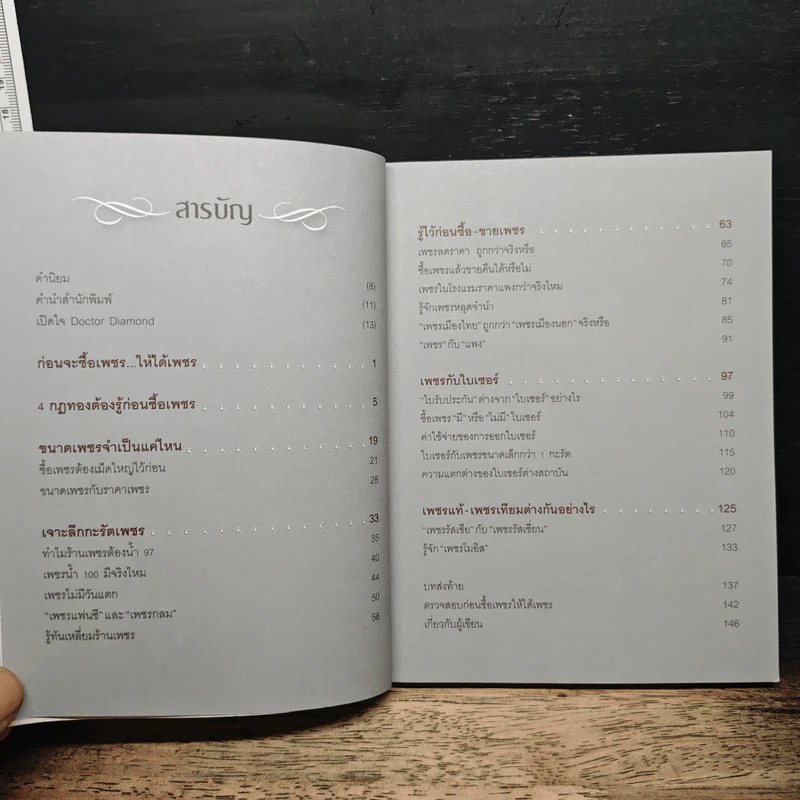 สารบัญ
คำนิยม (8)
คำนำสำนักพิมพ์ (11)
เปิดใจ Doctor Diamond (13)
ก่อนจะซื้อเพชร...ให้ได้เพชร 1
4 กฎทองต้องรู้ก่อนซื้อเพชร 5
ขนาดเพชรจำเป็นแค่ไหน 19
ซื้อเพชรต้องเม็ดใหญ่ไว้ก่อน 21
ขนาดเพชรกับราคาเพชร 28
เจาะลึกกะรัตเพชร 33
ทำไมร้านเพชรต้องน้ำ 97 35
เพชรน้ำ 100 มีจริงไหม 40
เพชรไม่มีวันแตก 44
"เพชรแฟนซี" และ "เพชรกลม" 50
รู้ทันเหลี่ยมร้านเพชร 56
รู้ไว้ก่อนซื้อ-ขายเพชร 63
เพชรลดราคา ถูกกว่าจริงหรือ 65
ซื้อเพชรแล้วขายคืนได้หรือไม่ 70
เพชรในโรงแรมราคาแพงกว่าจริงไหม 74
รู้จักเพชรหลุดจำนำ 81
"เพชรเมืองไทย" ถูกกว่า "เพชรเมืองนอก" จริงหรือ 85
"เพชร" กับ "แพง" 91
เพชรกับใบเซอร์ 97
"ใบรับประกัน" ต่างจาก "ใบเซอร์" อย่างไร 99
ซื้อเพชร "มี" หรือ "ไม่มี" ใบเซอร์ 104
ค่าใช้จ่ายของการออกใบเซอร์ 110
ใบเซอร์กับเพชรขนาดเล็กกว่า 1 กะรัต 115
ความแตกต่างของใบเซอร์ต่างสถาบัน 120
เพชรแท้-เพชรเทียมต่างกันอย่างไร 125
"เพชรรัสเซีย" กับ "เพชรรัสเซี่ยน" 127
รู้จัก "เพชรโมอิส" 133
บทส่งท้าย 137
ตรวจสอบก่อนซื้อเพชรให้ได้เพชร 142
เกี่ยวกับผู้เขียน 146
18
19